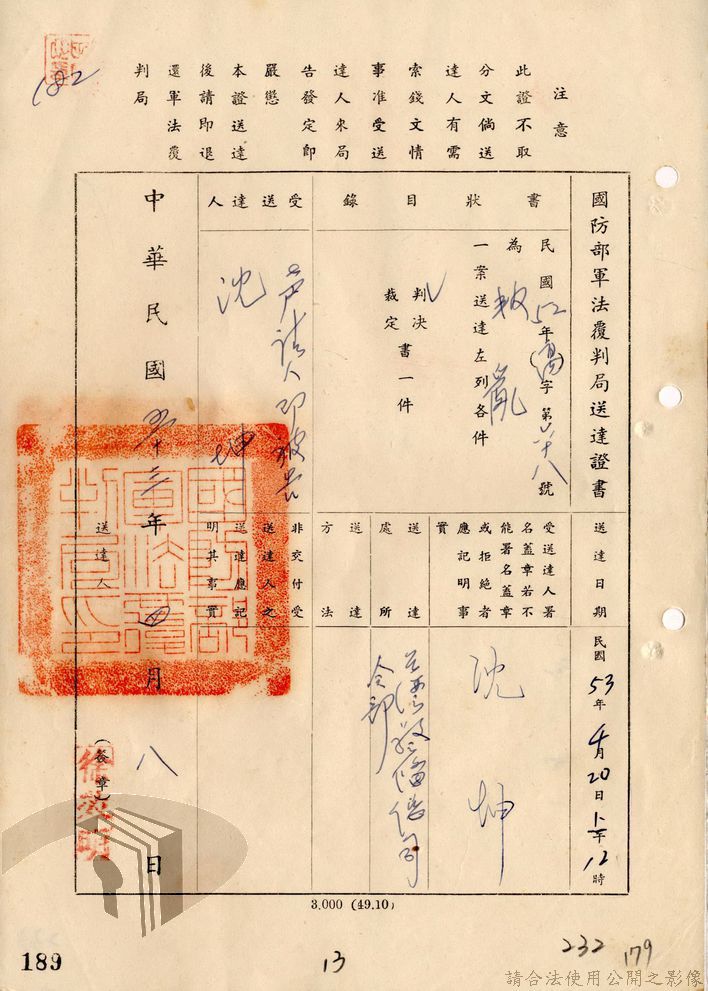 注意
此證不取
分文倘送
達人有需
索錢文情
事准受送
達人來局
告發定卽
嚴懲
本證送達
後請即退
還軍法覆
判局
國防部軍法覆判局送達證書
書狀目錄
民國52年(高)字第六十八號
為叛亂
一案送達左列各件
判決
裁定
書一件
受送達人
聲請人即被告
沈坤
送達日期
民國53年4月20日上午12時
受送達人署
名蓋章若不
能署名蓋章
或拒絕者
應記明事
實
沈坤
送達處所
送達方法
非交付受
送達人之
送達應記
明其事實
中華民國五十三年四月八日
送達人
(簽章)
國防部軍法覆判局印
3,000 (49.10)
182
189
13
232
179
請合法使用公開之影像